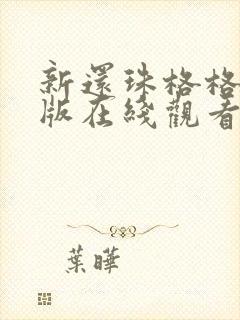 新還珠格格
版在綫觀看
葉曄